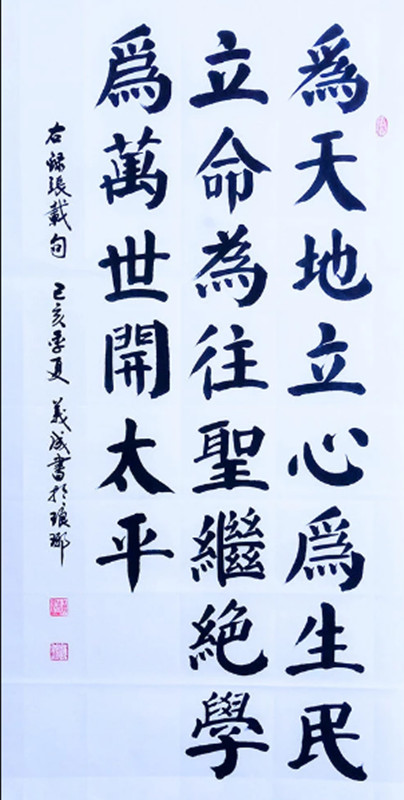 爲天地立心爲生民
立命為往聖繼絶學
爲萬世開太平
右録張載句 己亥季夏 義成書於琅琊